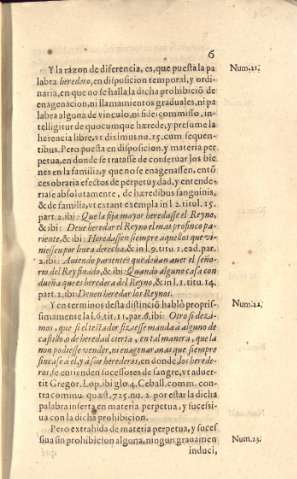 6
Y la razon de diferencia, es, que puesta la pa
labra heredero, en disposicion temporal, y ordi-
naria, en que no se halla la dicha prohibiciõ de
enagenacion, ni llamamientos graduales, ni pa
labra alguna de vinculo, ni fideicommisso, in-
telligitur de quocumque hærede, y presume la
herencia libre, vt diximus nu. 15. cum sequen-
tibus. Pero puesta en disposicion, y materia per
petua, en donde se tratasse de conseruar los bie
nes en la familia, y que no se enagenassen, entõ
ces obraria efectos de perpetuydad, y entende-
traise absolutamente, de hæredibus sanguinis,
& de familia, vt extant exempla in l. 2. titul. 15.
part. 2. ibi: Que la fija mayor heredasse el Reyno,
& ibi: Deue heredar el Reyno el mas propinco pa-
riente, & ibi: Heredassen siempre aquellos que vi-
niessen por liura derecha, & in l. 9. titu. 1. ead. par.
2. ibi: Auiendo parientes que deuan auer el seño-
rio del Rey finado, & ibi: Quando alguno casa con
dueña que es heredera del Reyno, & in l. 1. titu. 14.
part. 2. ibi: Deuen heredar los Reynos.
Y en terminos desta distincio habló propris-
simamente la l. 6. tit. 11. par. 6. ibi: Otro si dezi-
mos, que si el testador fiziesse manda à alguno de
castillo, o de heredad cierta, en tal manera, que la
non podiesse vender, ni enagenar mas que siempre
fincasse à el, y à sus herederos, en donde los herede-
ros, se entienden sucessores de sangre, vt aduer-
tit Gregor. Lop. ibi glo. 4. Ceball. comm. con-
tra commu. quæst. 725. nu. 2. por estar la dicha
palabra inserta en materia perpetua, y sucessi-
ua con la dicha prohibicion.
Pero extrahida de materia perpetua, y suces
siua sin prohibicion alguna, ningun grauamen
induci,
Num. 21.
Num. 22.
Num. 23.